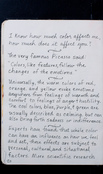 I know how much color affects me,
how much does it affect you?
The very famous Picasso said:
'Colors, like features, follow the
changes of the emotions.'
Universally, the warm colors of red,
orange, and yellow evoke emotions
ranging from feelings of warmth and
comfort to feelings of anger + hostility.
The cool colors, blue, purple, + green are
usually described as calming but can
also bring forth sadness or indifference.
Experts have found that while color
can have an influence on how we feel
and act, these effects are subject to
personal, cultural, and situational
factors. More scientific research